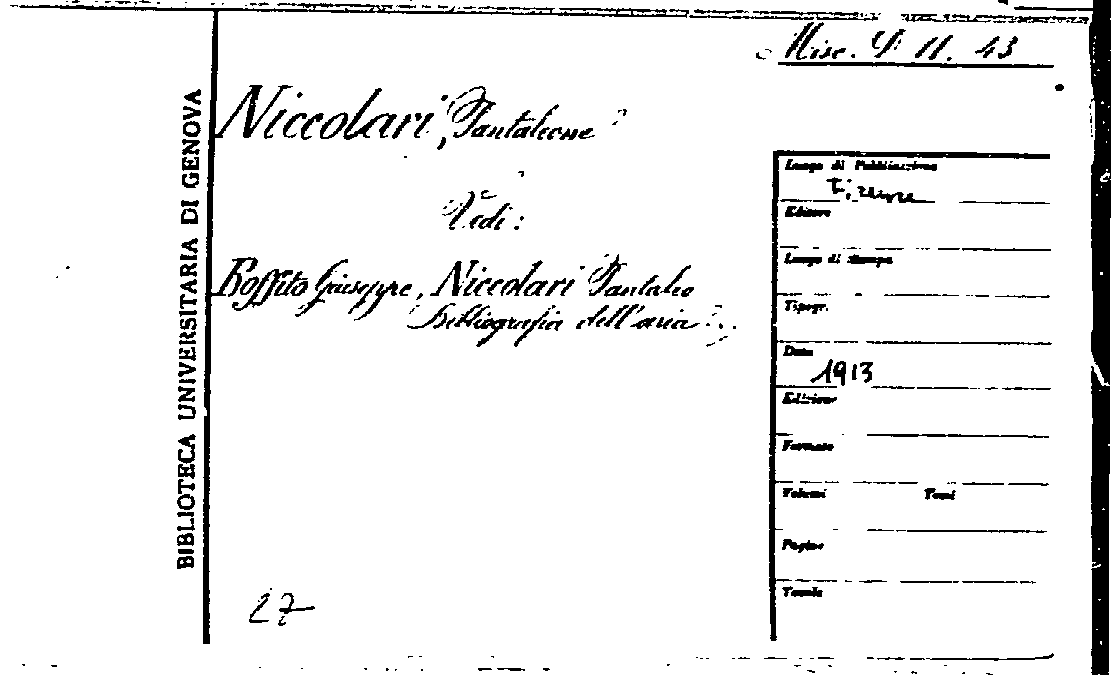 Misc. 11. 43
BIBLIOTECA UNIVERSITARIA DI GENOVA
Niccolari, Pantaleone
Vedi:
Boffito Giuseppe, Niccolari Pantaleo
Bibliografia dell'aria...
Luogo di Pubblicazione
Firenze
Editore
Luogo di Stampa
Tipogr.
Data
1913
Edizione
Formato
Volumi Tomi
Pagine
Tavole
27